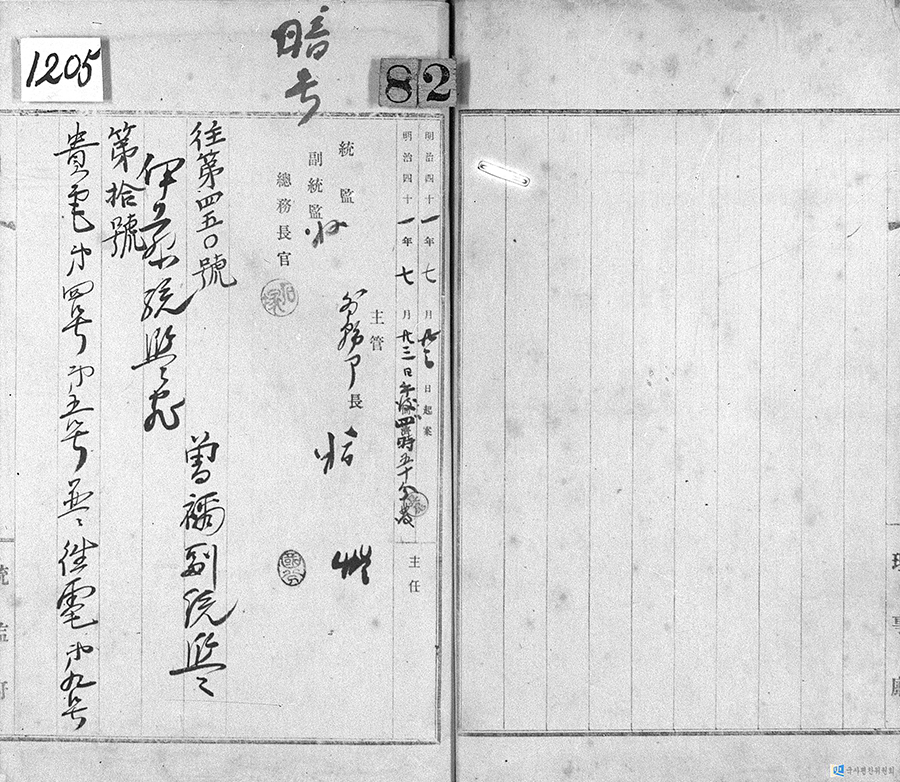 1205
暗号
82
明治四十一年七月廿三日起案
明治四十一年七月廿三日午後四時五十分發
主管
長
主任
統監
副統監
總務長官
往第四五〇號
曽禰副統監
伊藤統監宛
第拾號
貴電第四号第五号並ニ往電第九号
統監府
국사편찬위원회